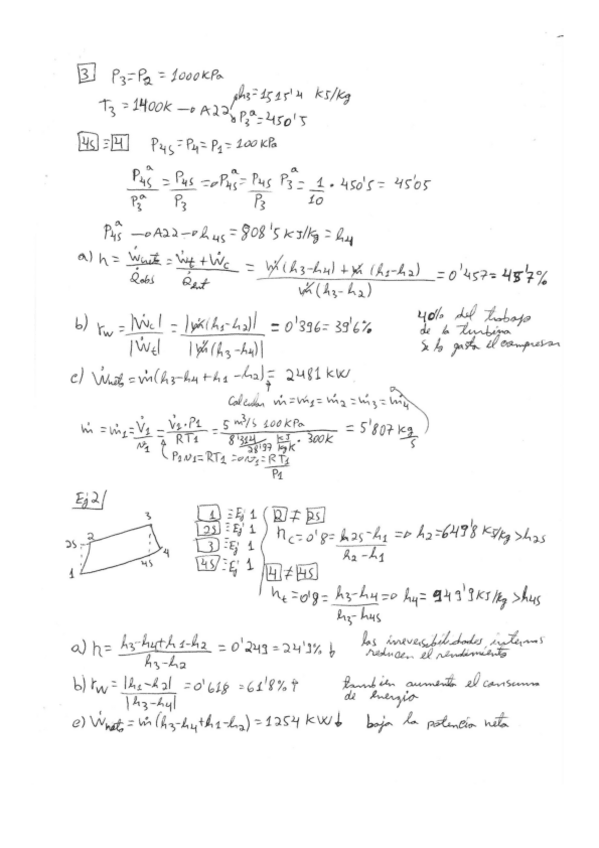 3 P3=P2 = 1000KPa
T3 = 1400K → A22 h3=1515'4 KJ/Kg
P3^a = 450'5
4s ≡ 4 P4s = P4 = P1 = 100 KPa
P4s^a/P3^a = P4s/P3 ⇒ P4s^a = P4s/P3 P3^a = 1/10 · 450'5 = 45'05
P4s^a → A22 → h4s = 808'5 KJ/Kg = h4
a) η = Ẇneta/Q̇abs = (Ẇt + Ẇc)/Q̇ent = (ṁ(h3-h4) + ṁ(h1-h2))/(ṁ(h3-h2)) = 0'457 = 45'7%
b) rw = |Ẇc|/|Ẇt| = |ṁ(h1-h2)|/|ṁ(h3-h4)| = 0'396 = 39'6% 40% del trabajo
de la turbina
se lo gasta el compresor
c) Ẇneto = ṁ(h3-h4+h1-h2) = 2481 KW
Calcular ṁ = ṁ1 = ṁ2 = ṁ3 = ṁ4
ṁ = ṁ1 = V̇1/v1 = V̇1·P1/RT1 = (5 m³/s 100KPa)/(8'314/28'97 KJ/KgK · 300K) = 5'807 Kg/s
P1v1 = RT1 ⇒ v1 = RT1/P1
Ej 2/
1 ≡ Ej 1
2s ≡ Ej 1
3 ≡ Ej 1
4s ≡ Ej 1
2 ≠ 2s
ηc = 0'8 = (h2s-h1)/(h2-h1) ⇒ h2 = 649'8 KJ/Kg > h2s
4 ≠ 4s
ηt = 0'8 = (h3-h4)/(h3-h4s) ⇒ h4 = 949'9 KJ/Kg > h4s
3
2s 2
4
1 4s
a) η = (h3-h4+h1-h2)/(h3-h2) = 0'249 = 24'9% ↓ las irreversibilidades internas
reducen el rendimiento
b) rw = |h1-h2|/|h3-h4| = 0'618 = 61'8% ↑ también aumenta el consumo
de energía
c) Ẇneto = ṁ(h3-h4+h1-h2) = 1254 KW ↓ baja la potencia neta